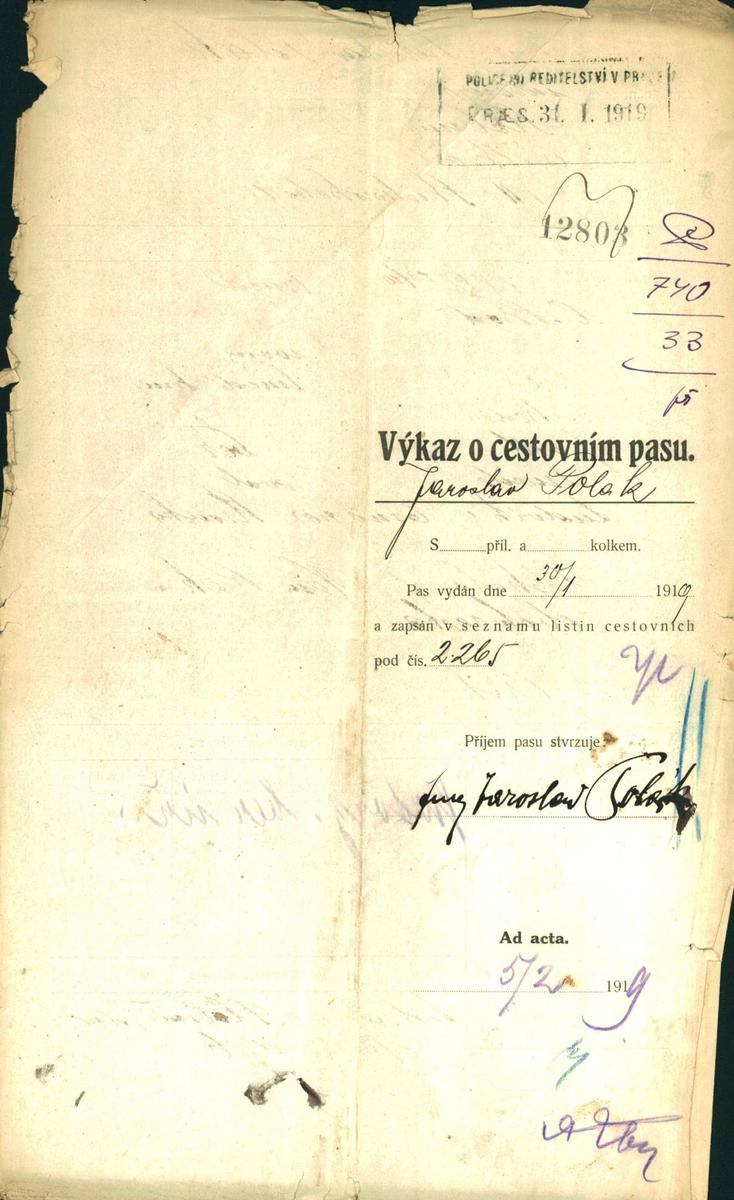 POLICEJNÍ ŘEDITELSTVÍ V PRAZE
PRÆS. 31. I. 1919
12803
740
33
Výkaz o cestovním pasu.
Jaroslav Polak
S příl. a kolkem.
Pas vydán dne 30/1 1919
a zapsán v seznamu listin cestovních
pod čís. 2265
Příjem pasu stvrzuje
Jaroslav Polák
Ad acta.
5/2 1919